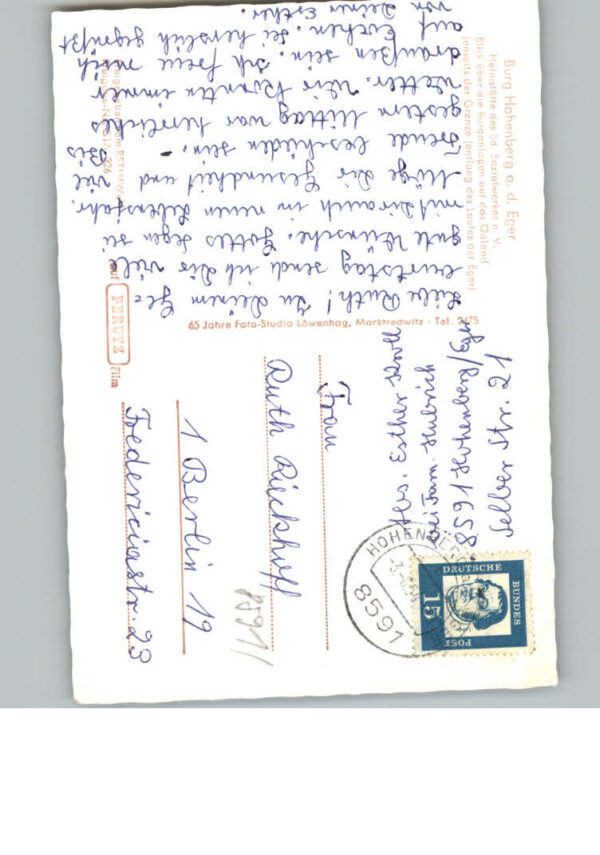 Burg Hohenberg a. d. Eger
Heimstätte des Sd. Sozialwerkes e. V.
Blick über die Burganlagen auf das Ostland
jenseits der Grenze (entlang des Laufes der Eger)
Liebe Ruth! Zu Deinem Ge=
burtstag send ich Dir viele
gute Wünsche. Gottes Segen sei
mit Dir auch im neuen Lebensjahr.
Möge Dir Gesundheit und viel
Freude beschieden sein. – Bis
gestern Mittag war herrliches
Wetter. Wir konnten immer
draußen sein. Ich freue mich
auf Lochen. Sei herzlich gegrüßt
von Deiner Esther.
65 Jahre Foto-Studio Löwenhag, Marktredwitz - Tel. 2475
auf PERUTZ Film
Abs. Esther
bei Fam. Hubrich
8591 Hohenberg/Eg
Selber Str. 21
HOHENBERG
8591
DEUTSCHE
BUNDES
POST
15
Frau
Ruth Rieckhoff
1 Berlin 19
Fredericiastr. 23
8591/